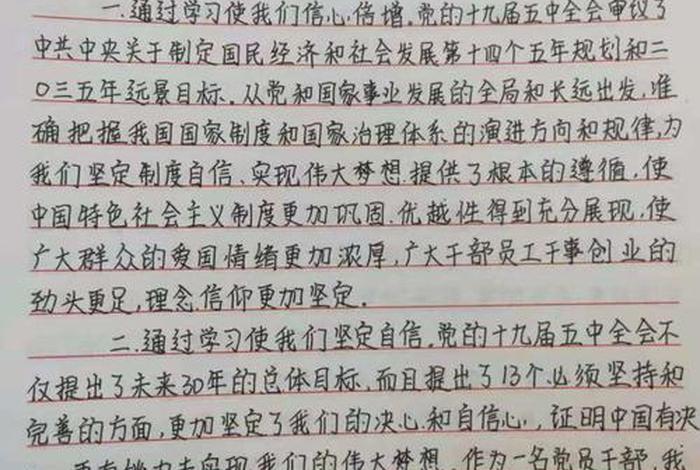 一.通过学习使我们信心倍增。党的十九届五中全会审议了
中共中央关于制定国民经济和社会发展第十四个五年规划和二
〇三五年远景目标。从党和国家事业发展的全局和长远出发,准
确把握我国国家制度和国家治理体系的演进方向和规律,为
我们坚定制度自信、实现伟大梦想.提供了根本的遵循,使
中国特色社会主义制度更加巩固.优越性得到充分展现,使
广大群众的爱国情绪更加浓厚,广大干部员工干事创业的
劲头更足,理念.信仰更加坚定。
二.通过学习使我们坚定自信。党的十九届五中全会不
仅提出了未来30年的总体目标,而且提出了13个必须坚持和
完善的方面,更加坚定了我们的决心和自信心,证明中国有决
更有能力去实现我们的伟大梦想.作为一名党员干部.我